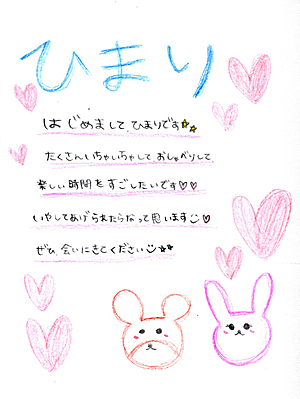 ひまり
はじめまして、ひまりです☆☆
たくさんいちゃいちゃして おしゃべりして
楽しい時間をすごしたいです♡♡
いやしてあげられたらなって思います☺♡
ぜひ、会いにきてください☺☆☆